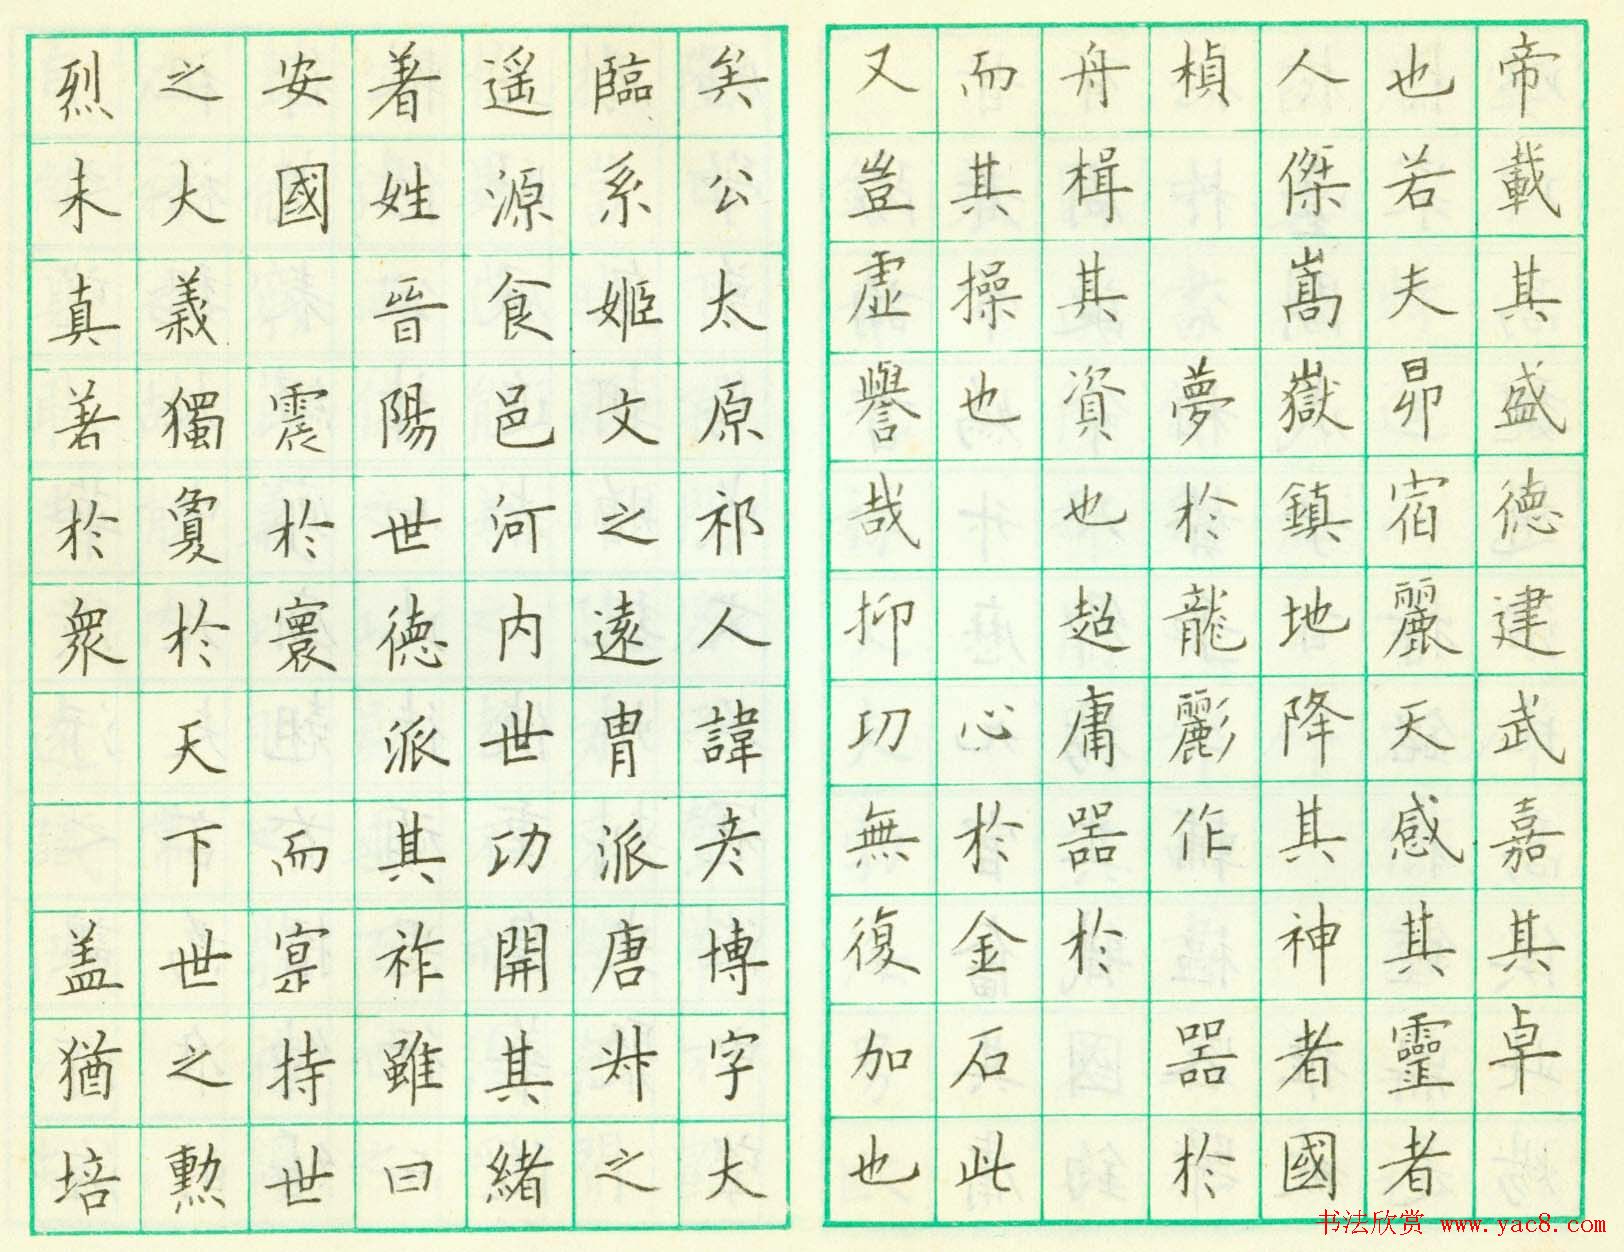 帝載其盛德建武嘉其卓
也若夫昴宿麗天感其靈者
人傑嵩嶽鎮地降其神者國
楨夢於龍彲作器於
舟楫其資也超庸器於
而其操也心於金石此
又豈虛譽哉抑功無復加也
矣公太原祁人諱彦博字大
臨系姬文之遠胄派唐叔之
遥源食邑河内世功開其緒
著姓晉陽世德派其祚雖曰
安國震於寰而寔持世
之大義獨敻於天下世之勲
烈未真著於衆盖猶培
书法欣赏 www.yac8.com